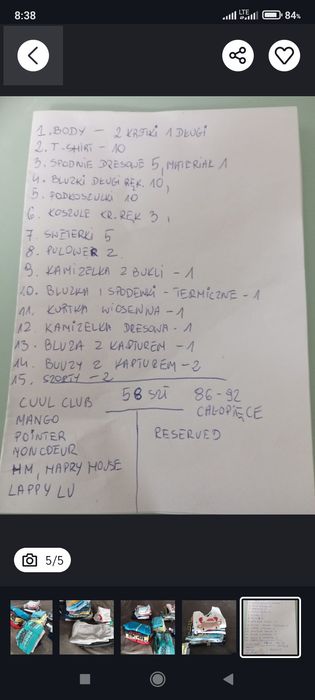 8:38
LTE
84%
1. BODY - 2 KRÓTKI 1 DŁUGI
2. T-SHIRT - 10
3. SPODNIE DRESOWE 5, MATERIAŁ 1
4. BLUZKI DŁUGI RĘK. 10,
5. PODKOSZULKI 10
6. KOSZULE KR. RĘK 3,
7. SWETERKI 5
8. PULOWER 2.
9. KAMIZELKA Z BUKLI - 1
10. BLUZKA I SPODENKI - TERMICZNE - 1
11. KURTKA WIOSENNA - 1
12. KAMIZELKA DRESOWA - 1
13. BLUZA Z KAPTUREM - 1
14. BLUZY Z KAPTUREM - 2
15. SZORTY - 2
58 SZT 86-92
CHŁOPIĘCE
CUUL CLUB
MANGO
POINTER
NONCOEUR
HM, HAPPY HOUSE
LAPPY LU
RESERVED
5/5